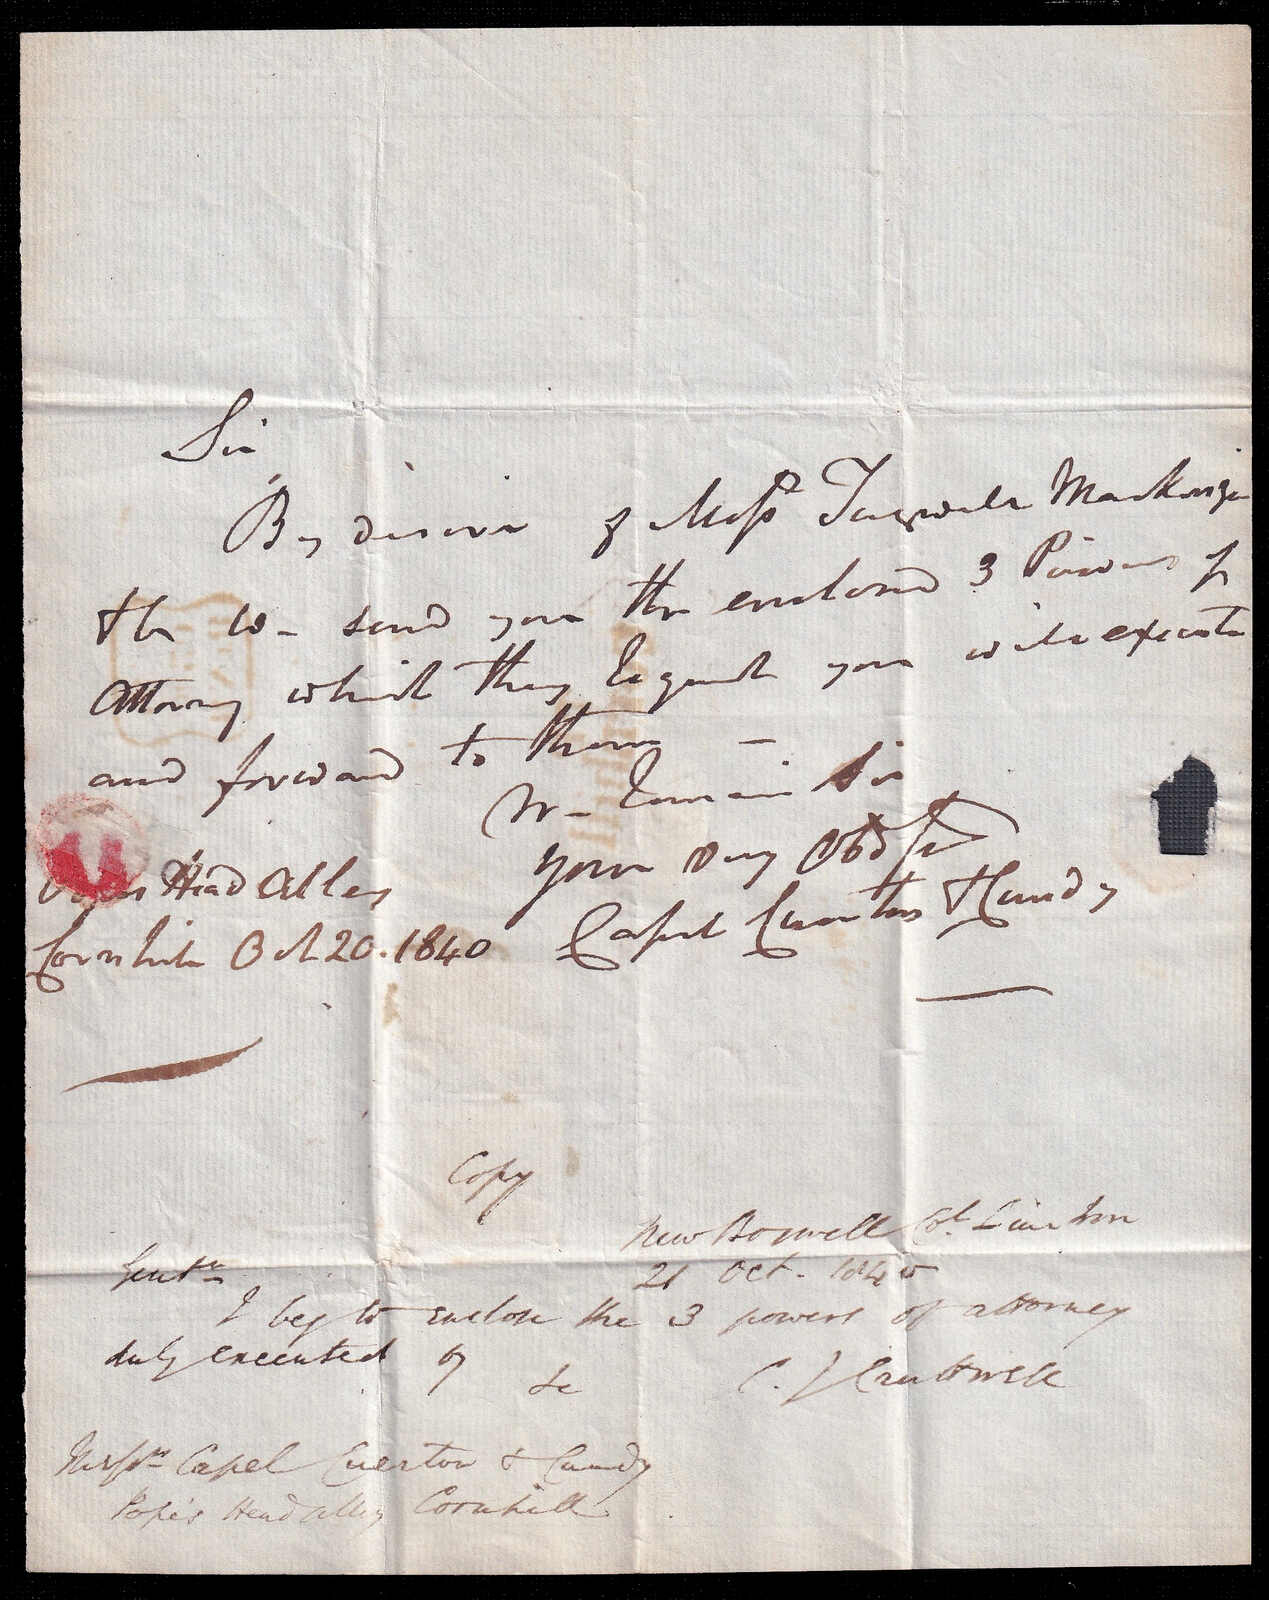 Sir
By desire of Messrs Tugwell Mackenzie
& Co We send you the enclosed 3 Powers of
Attorney which they request you will execute
and forward to them —
We remain Sir
Your Very Obdt
Popes Head Alley
Capel Cuerton & Cundy
Cornhill Oct 20. 1840
Copy
New Boswell Ct. Lincs Inn
21 Oct. 1840
Gentn
I beg to enclose the 3 powers of attorney
duly executed by
&c
C. J Cruttwell
Messrs Capel Cuerton & Cundy
Pope's Head Alley Cornhill